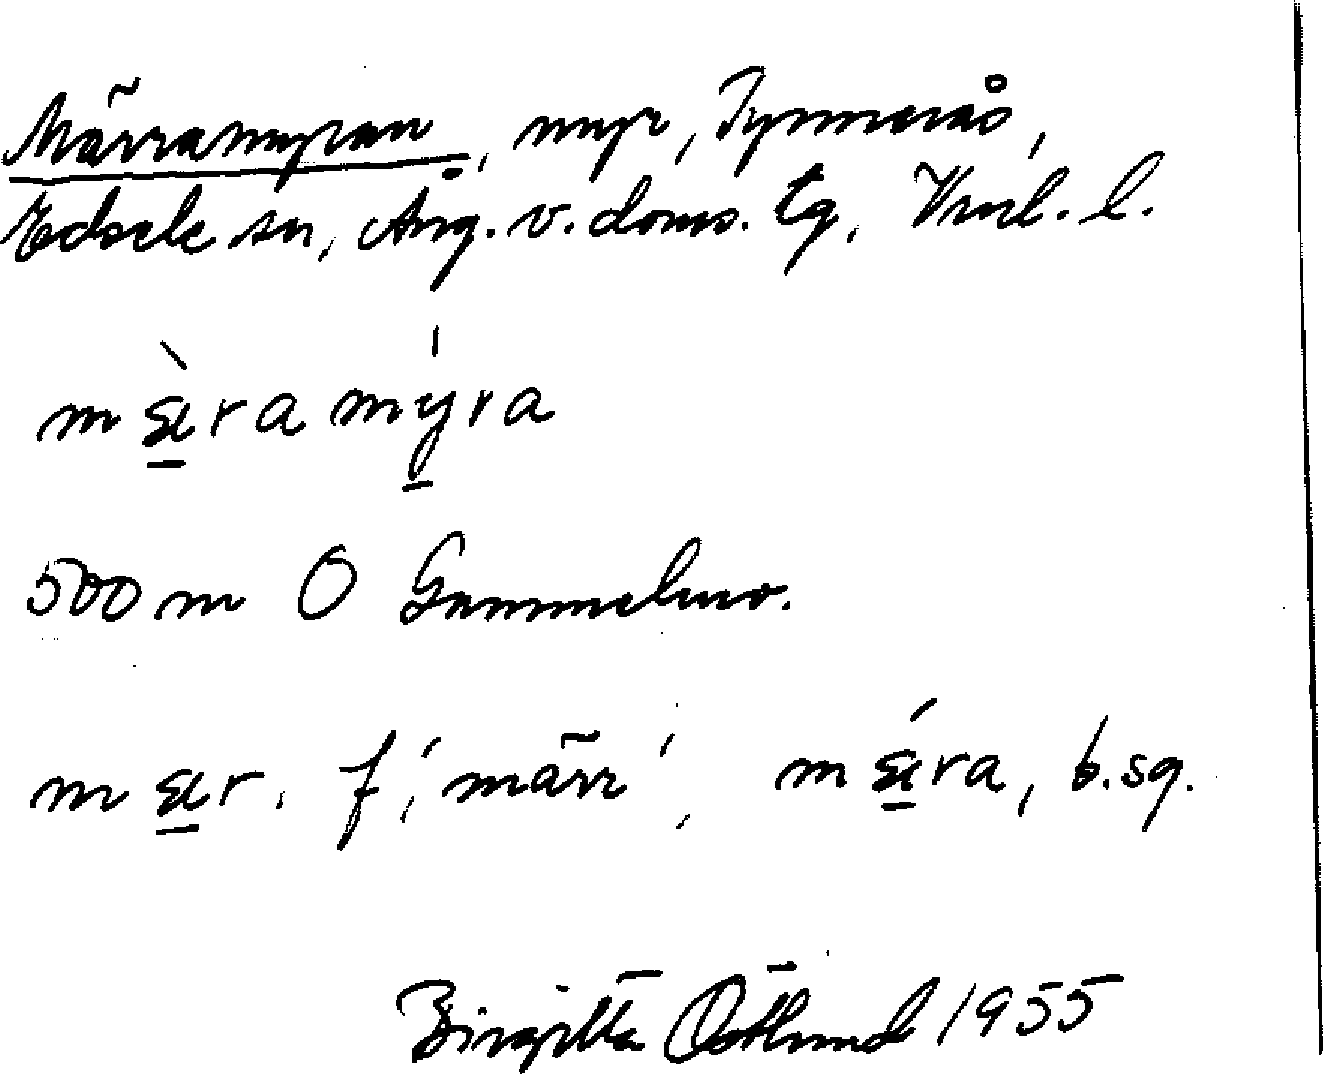 Märramyran, myr, Tynnerås,
Edsele sn, Ång. v. doms. tg, Vnl. l.
mæ̀ramýra
500 m O Gammelmo.
mær. f, 'märr', mǽra, b.sg.
Birgitta Östlund 1955